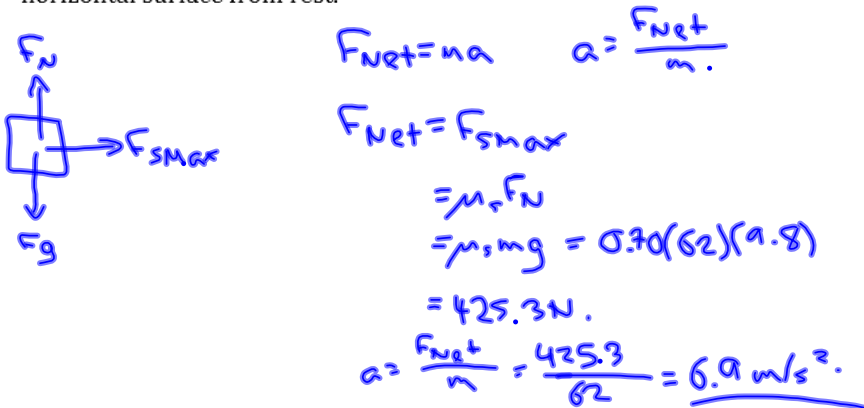 horizontal surface from rest.
F_N
F_SMax
F_g
F_Net = ma    a = F_Net / m.
F_Net = F_smax
= μ_s F_N
= μ_s mg = 0.70(62)(9.8)
= 425.3N.
a = F_Net / m = 425.3 / 62 = 6.9 m/s².